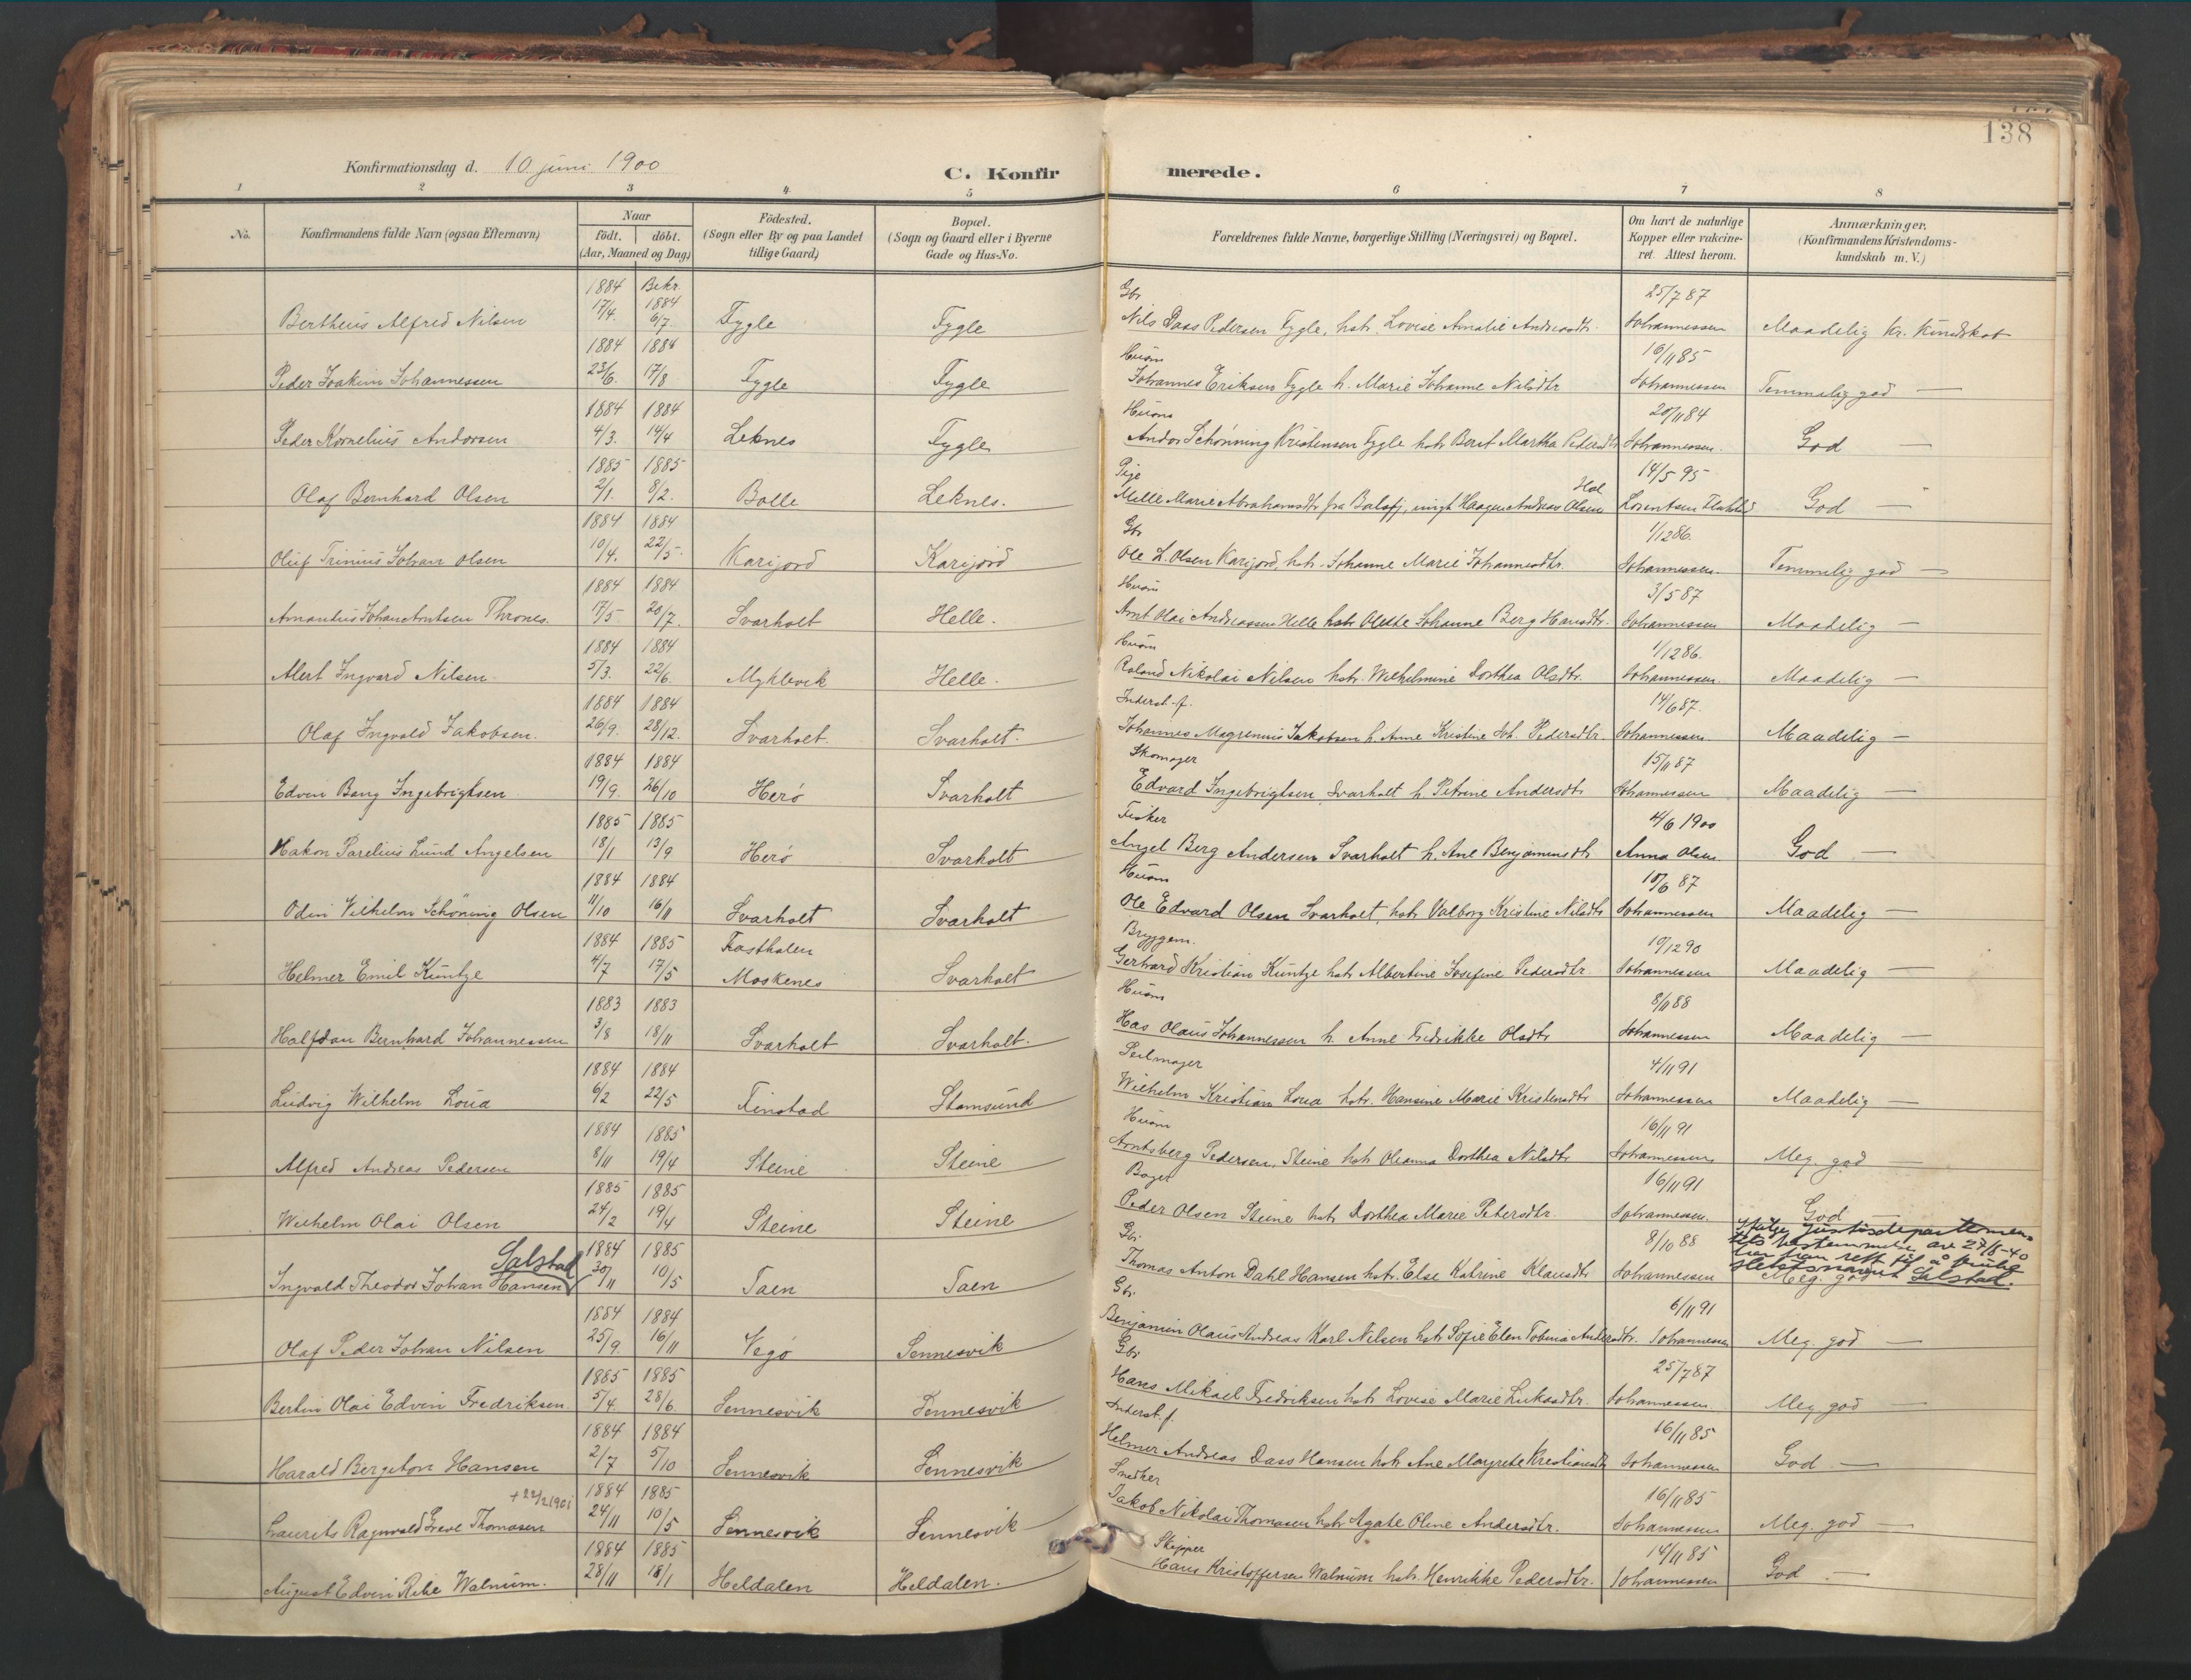 138
Konfirmationsdag d. 10 juni 1900
C. Konfirmerede.
1 2 3 4 5 6 7 8
No. | Konfirmandens fulde Navn (ogsaa Efternavn) | Naar født. døbt. (Aar, Maaned og Dag) | Födested. (Sogn eller By og paa Landet tillige Gaard) | Bopæl. (Sogn og Gaard eller i Byerne Gade og Hus-No. | Forældrenes fulde Navne, borgerlige Stilling (Næringsvei) og Bopæl. | Om havt de naturlige Kopper eller vakcineret. Attest herom. | Anmærkninger. (Konfirmandens Kristendomskundskab m. V.)
Bertheus Alfred Nilsen | 1884 17/4. | Bekr. 1884 6/7. | Fygle | Fygle | Gbr Nils Dass Pedersen Fygle, hstr. Lovise Amalie Andreasdtr. | 25/7 87 Johannessen | Maadelig kr. kundskab
Peder Joakim Johannessen | 1884 23/6. | 1884 17/8 | Fygle | Fygle | Husm Johannes Eriksen Fygle h. Marie Johanne Nilsdtr | 16/11 85 Johannessen | Temmelig god —
Peder Kornelius Andorsen | 1884 4/3. | 1884 14/4 | Leknes | Fygle | Husm Andor Schønning Kristensen Fygle hstr Berit Martha Pedersdtr | 20/11 84 Johannessen. | God —
Olaf Bernhard Olsen | 1885 2/1. | 1885 8/2. | Bolle | Leknes. | Pige Mille Marie Abrahamsdtr fra , ungk Haagen Andreas Olsen Hol | 14/5 95 Lorentsen | God —
Oluf Trinius Johan Olsen | 1884 10/4. | 1884 22/5. | Karijord | Karijord | Gbr Ole L. Olsen Karijord, hstr. Johanne Marie Johannesdtr. | 1/12 86. Johannessen. | Temmelig god —
Amandus Johan Arntsen Thrones. | 1884 17/5 | 1884 20/7. | Svarholt | Helle. | Husm Arnt Olai Andreassen Helle hstr Olette Johanne Berg Hansdtr. | 3/5 87 Johannessen | Maadelig —
Alert Ingvard Nilsen. | 1884 5/3. | 1884 22/6. | Myklevik | Helle. | Husm Roland Nikolai Nilsen hstr. Wilhelmine Dorthea Olsdtr. | 1/12 86. Johannessen. | Maadelig —
Olaf Ingvald Jakobsen. | 1884 26/9. | 1884 28/12. | Svarholt. | Svarholt. | Inderst. f. Johannes Magrenius Jakobsen h. Anne Kristine Joh. Pedersdtr. | 14/6 87. Johannessen | Maadelig —
Edvin Bang Ingebrigtsen | 1884 19/9. | 1884 26/10 | Herö | Svarholt | Skomager Edvard Ingebrigtsen Svarholt h. Petrine Andersdtr | 15/11 87 Johannessen | Maadelig —
Hakon Parelius Lund Angelsen | 1885 18/1 | 1885 13/9 | Herö | Svarholt | Fisker Angel Berg Andersen Svarholt h. Ane Benjaminsdtr | 4/6 1900 Anna Olsen | God —
Odin Vilhelm Schöning Olsen | 1884 11/10 | 1884 16/11 | Svarholt | Svarholt | Husm Ole Edvard Olsen Svarholt hstr Valborg Kristine Nilsdtr | 10/6 87 Johannessen | Maadelig —
Helmer Emil Küntze | 1884 4/7 | 1885 17/5 | Moskenes | Svarholt | Bryggem. Gerhard Kristian Küntze hstr Albertine Josefine Pedersdtr. | 10/12 90 Johannessen | Maadelig —
Halfdan Bernhard Johannessen | 1883 3/8 | 1883 18/11 | Svarholt | Svarholt. | Husm Has Olaus Johannessen h. Anne Fredrikke Olsdtr | 8/11 88 Johannessen | Maadelig —
Ludvig Wilhelm Loua | 1884 6/2 | 1884 22/5 | Finstad | Stamsund | Seilmager Wilhelm Kristian Loua hstr. Hansine Marie Kristensdtr | 4/11 91 Johannessen | Maadelig —
Alfred Andreas Pedersen | 1884 8/11 | 1885 19/4 | Steine | Steine | Husm Arntsberg Pedersen, Steine hstr Oleanna Dorthea Nilsdtr | 16/11 91 Johannessen | Meg. god —
Wilhelm Olai Olsen | 1885 24/2 | 1885 19/4 | Steine | Steine | Bager Peder Olsen Steine hstr Dorthea Marie Petersdtr. | 16/11 91 Johannessen. | God —
Ingvald Theodor Johan Hansen Salstad | 1884 30/11 | 1885 10/5 | Taen | Taen | Gbr. Thomas Anton Dahl Hansen hstr. Else Katrine Klausdtr | 8/10 88 Johannessen | Meg. god Ifølge Justisdepartementets bestemmelse av 27/8-40 har han rett til å bruke slektsnavnet Salstad.
Olaf Peder Johan Nilsen | 1884 25/9. | 1884 16/11 | Vegö | Sennesvik | Gbr. Benjamin Olaus Andreas Karl Nilsen hstr Sofie Elen Tobina Andersdtr. | 6/11 91 Johannessen | Meg. god —
Bertin Olai Edvin Fredriksen. | 1885 5/4. | 1885 28/6. | Sennesvik | Sennesvik | Gbr Hans Mikael Fredriksen hstr Lovise Marie Lukasdtr. | 25/7 87 Johannessen. | Meg. god —
Harald Bergiton Hansen | 1884 2/7 | 1884 5/10 | Sennesvik | Sennesvik | Inderst. f. Helmer Andreas Dass Hansen hstr Ane Margrete Kristiansdtr | 16/11 85 Johannessen | God —
Laurits Ragnvald Greve Thomasen + 22/2 1901 | 1884 24/11 | 1885 10/5 | Sennesvik | Sennesvik | Snedker Jakob Nikolai Thomasen hstr Agate Oline Andersdtr. | 16/11 85 Johannessen | Meg. god —
August Edvin Rike Walnum. | 1884 28/11 | 1885 18/1 | Heldalen | Heldalen. | Skipper Hans Kristoffersen Walnum hstr. Henrikke Pedersdtr. | 14/11 85 Johannessen | God —